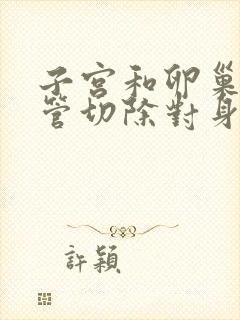 子宮和卵巢
管切除對身
許穎